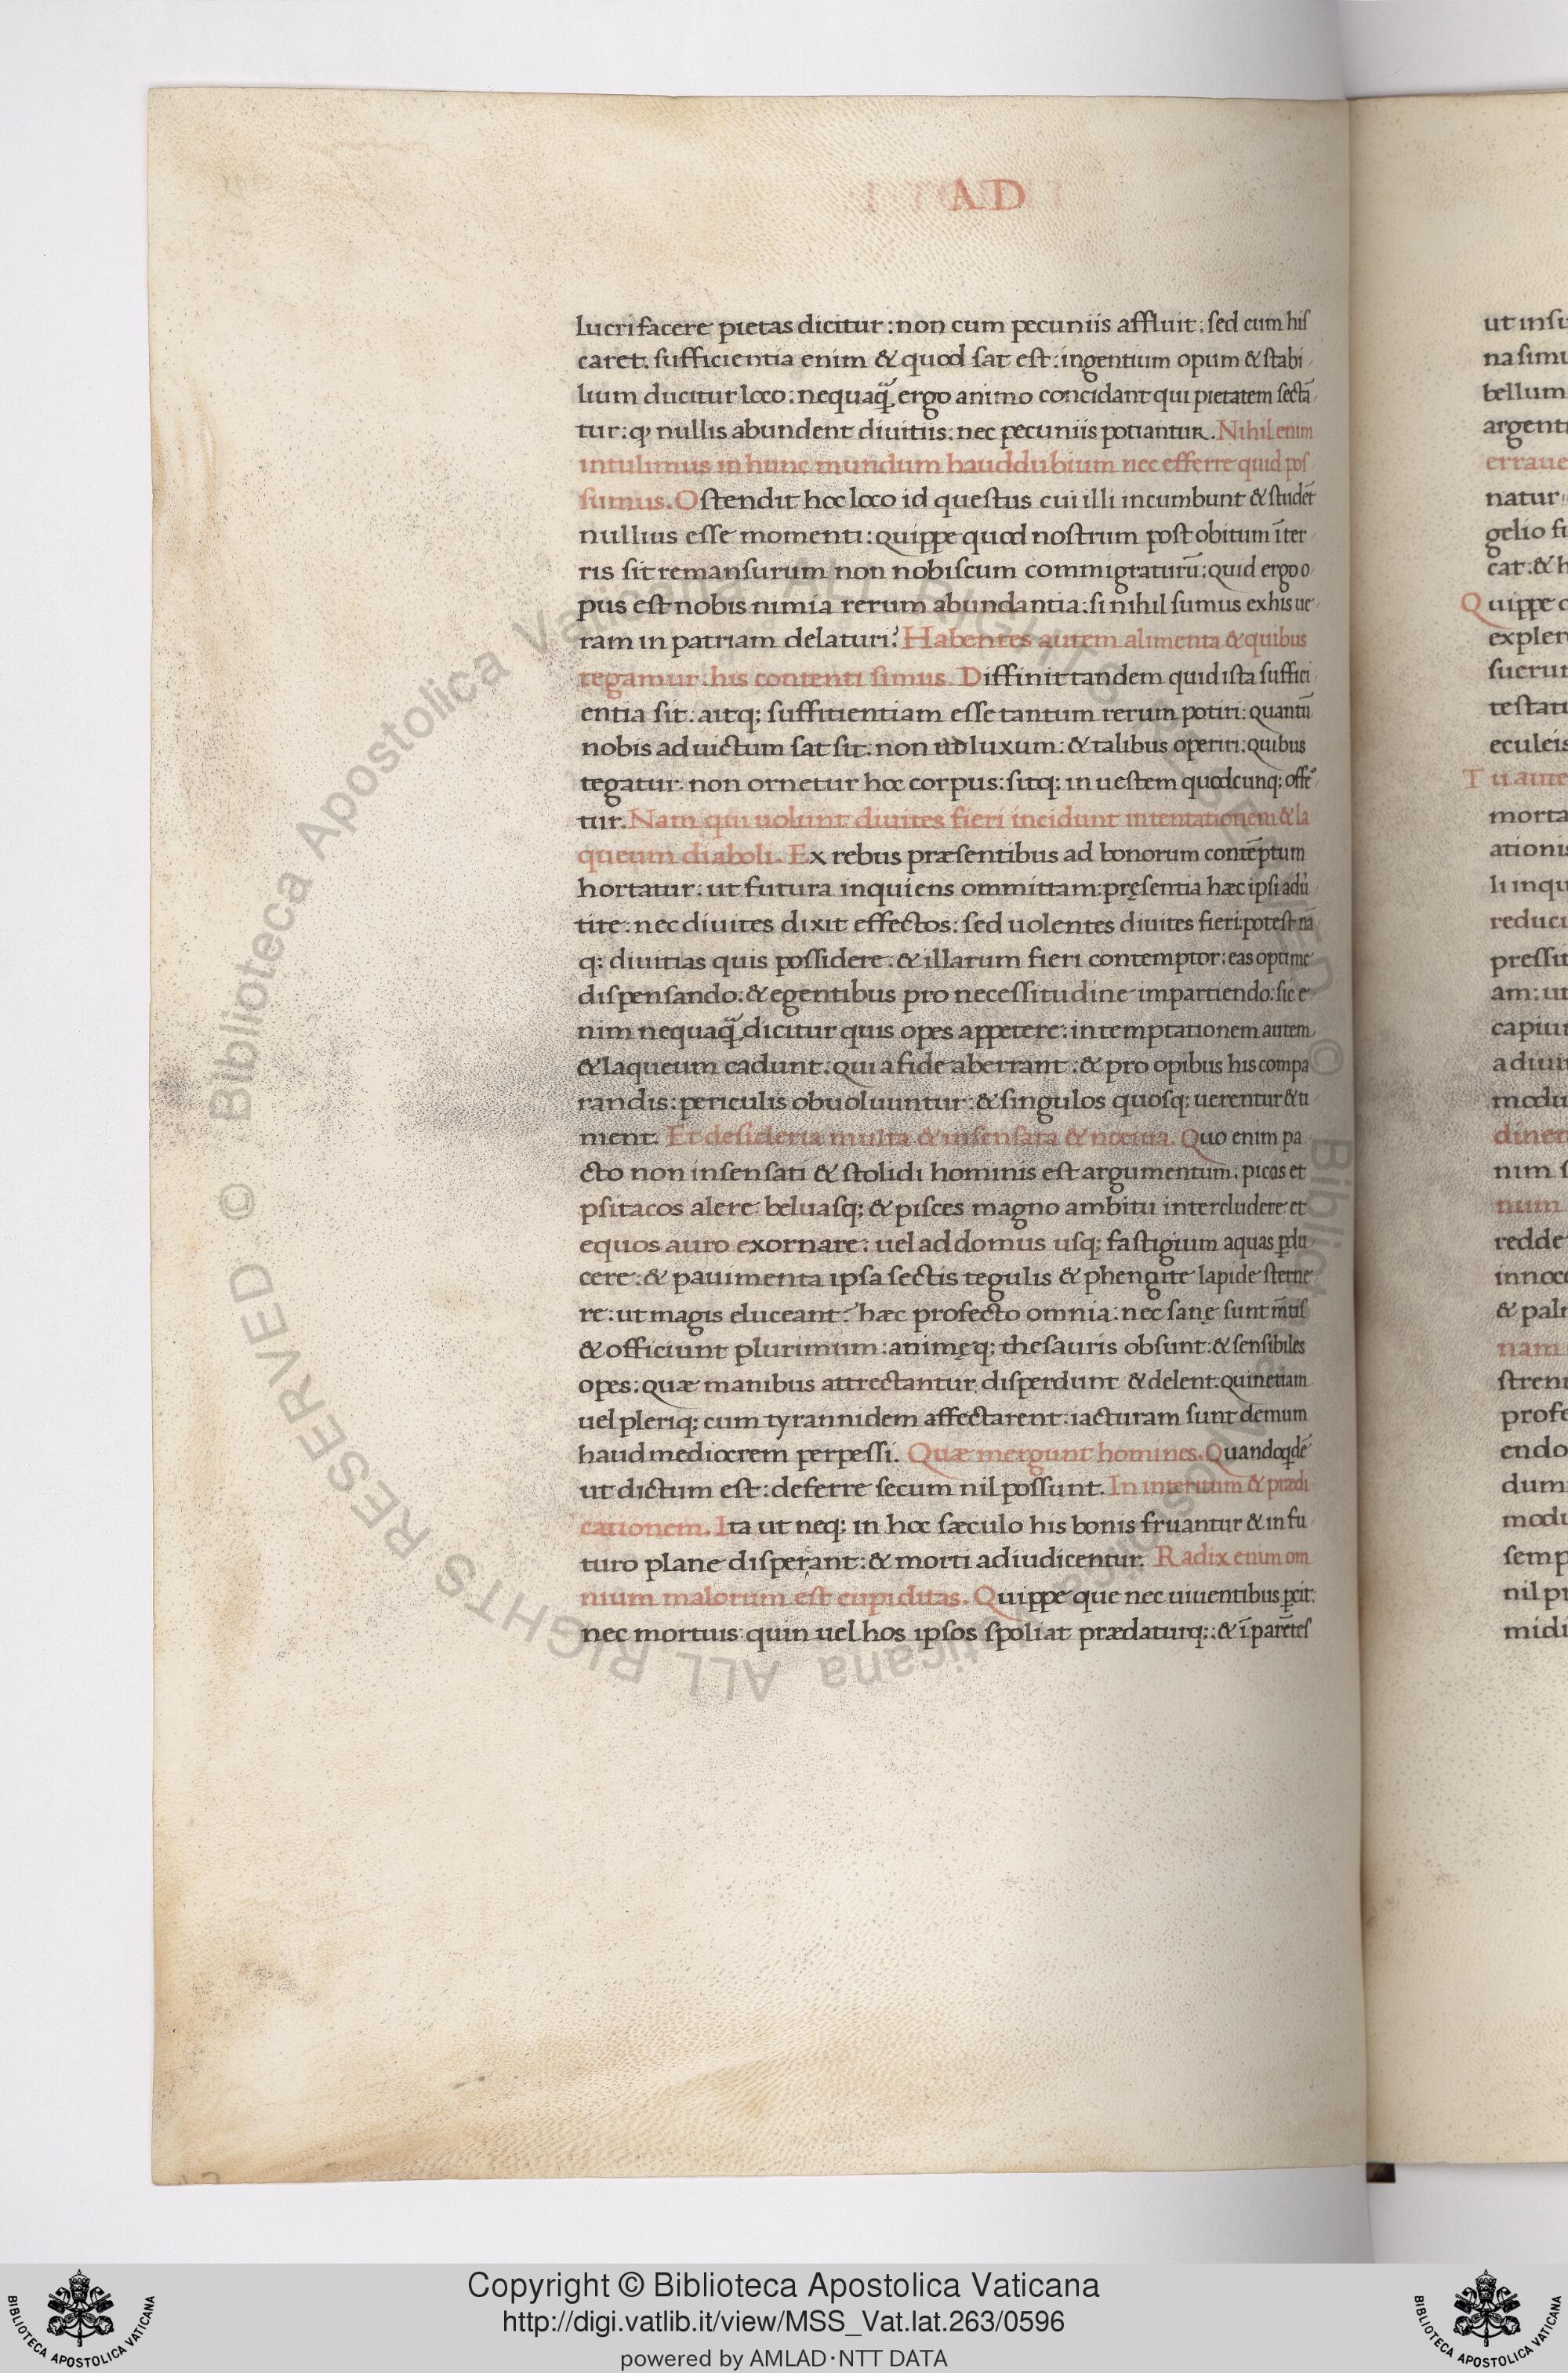 AD
lucrifacere pietas dicitur: non cum pecuniis affluit: sed cum his
caret. sufficientia enim & quod sat est: ingentium opum & stabi
lium ducitur loco: nequaq̃ ergo animo concidant qui pietatem sectã
tur: q nullis abundent diuitiis: nec pecuniis potiantur. Nihil enim
intulimus in hunc mundum hauddubium nec efferre quid pos
sumus. Ostendit hoc loco id questus cui illi incumbunt & studẽt
nullius esse momenti: quippe quod nostrum post obitum ĩ ter
ris sit remansurum non nobiscum commigraturũ: quid ergo o
pus est nobis nimia rerum abundantia: si nihil sumus ex his ue
ram in patriam delaturi? Habentes autem alimenta & quibus
tegamur: his contenti simus. Diffinit tandem quid ista suffici
entia sit. aitq; suffitientiam esse tantum rerum potiri: quantũ
nobis ad uictum sat sit: non ad luxum: & talibus operiri: quibus
tegatur non ornetur hoc corpus: sitq; in uestem quodcunq; offr̃
tur. Nam qui uolunt diuites fieri incidunt in tentationem & la
queum diaboli. Ex rebus præsentibus ad bonorum contẽptum
hortatur: ut futura inquiens ommittam: pręsentia hæc ipsi adũ
tite: nec diuites dixit effectos: sed uolentes diuites fieri: potest nã
q: diuitias quis possidere: & illarum fieri contemptor: eas optime
dispensando: & egentibus pro necessitudine impartiendo: sic e
nim nequaq̃ dicitur quis opes appetere: in temptationem autem
& laqueum cadunt: qui a fide aberrant: & pro opibus his compa
randis: periculis obuoluuntur: & singulos quosq: uerentur & ti
ment. Et desideria multa & insensata & nociua. Quo enim pa
cto non insensati & stolidi hominis est argumentum, picas et
psitacos alere beluasq; & pisces magno ambitu intercludere et
equos auro exornare: uel ad domus usq; fastigium aquas p̱du
cere: & pauimenta ipsa sectis tegulis & phengite lapide sterne
re: ut magis eluceant? hæc profecto omnia: nec sanę sunt m̃tis
& officiunt plurimum: animęq; thesauris obsunt: & sensibiles
opes: quæ manibus attrectantur disperdunt & delent: quinetiam
uel pleriq; cum tyrannidem affectarent: iacturam sunt demum
haud mediocrem perpessi. Quæ mergunt homines. Quandoqdẽ
ut dictum est: deferre secum nil possunt. In interitum & prædi
cationem. Ita ut neq: in hoc sæculo his bonis fruantur & in fu
turo plane disperant: & morti adiudicentur. Radix enim om
nium malorum est cupiditas. Quippe que nec uiuentibus p̱cit:
nec mortuis: quin uel hos ipsos spoliat prædaturq:: & ĩ parẽtes
ut insu
na simu
bellum
argenti
erraue
natur
gelio fu
cat: & h
Quippe c
explen
suerun
testati
eculeis
Tu aute
morta
ationis
li inqu
reduci
pressit
am: ut
capiun
a diuit
modu
diner
nim s
num
redde
innoc
& palr
nam
stren
profe
endo
dum
modu
semp
nil pr
midi
© Biblioteca Apostolica Vaticana ALL RIGHTS RESERVED
Copyright © Biblioteca Apostolica Vaticana
http://digi.vatlib.it/view/MSS_Vat.lat.263/0596
powered by AMLAD·NTT DATA
BIBLIOTECA APOSTOLICA VATICANA
BIBLIOTECA APOSTOLICA VATICANA